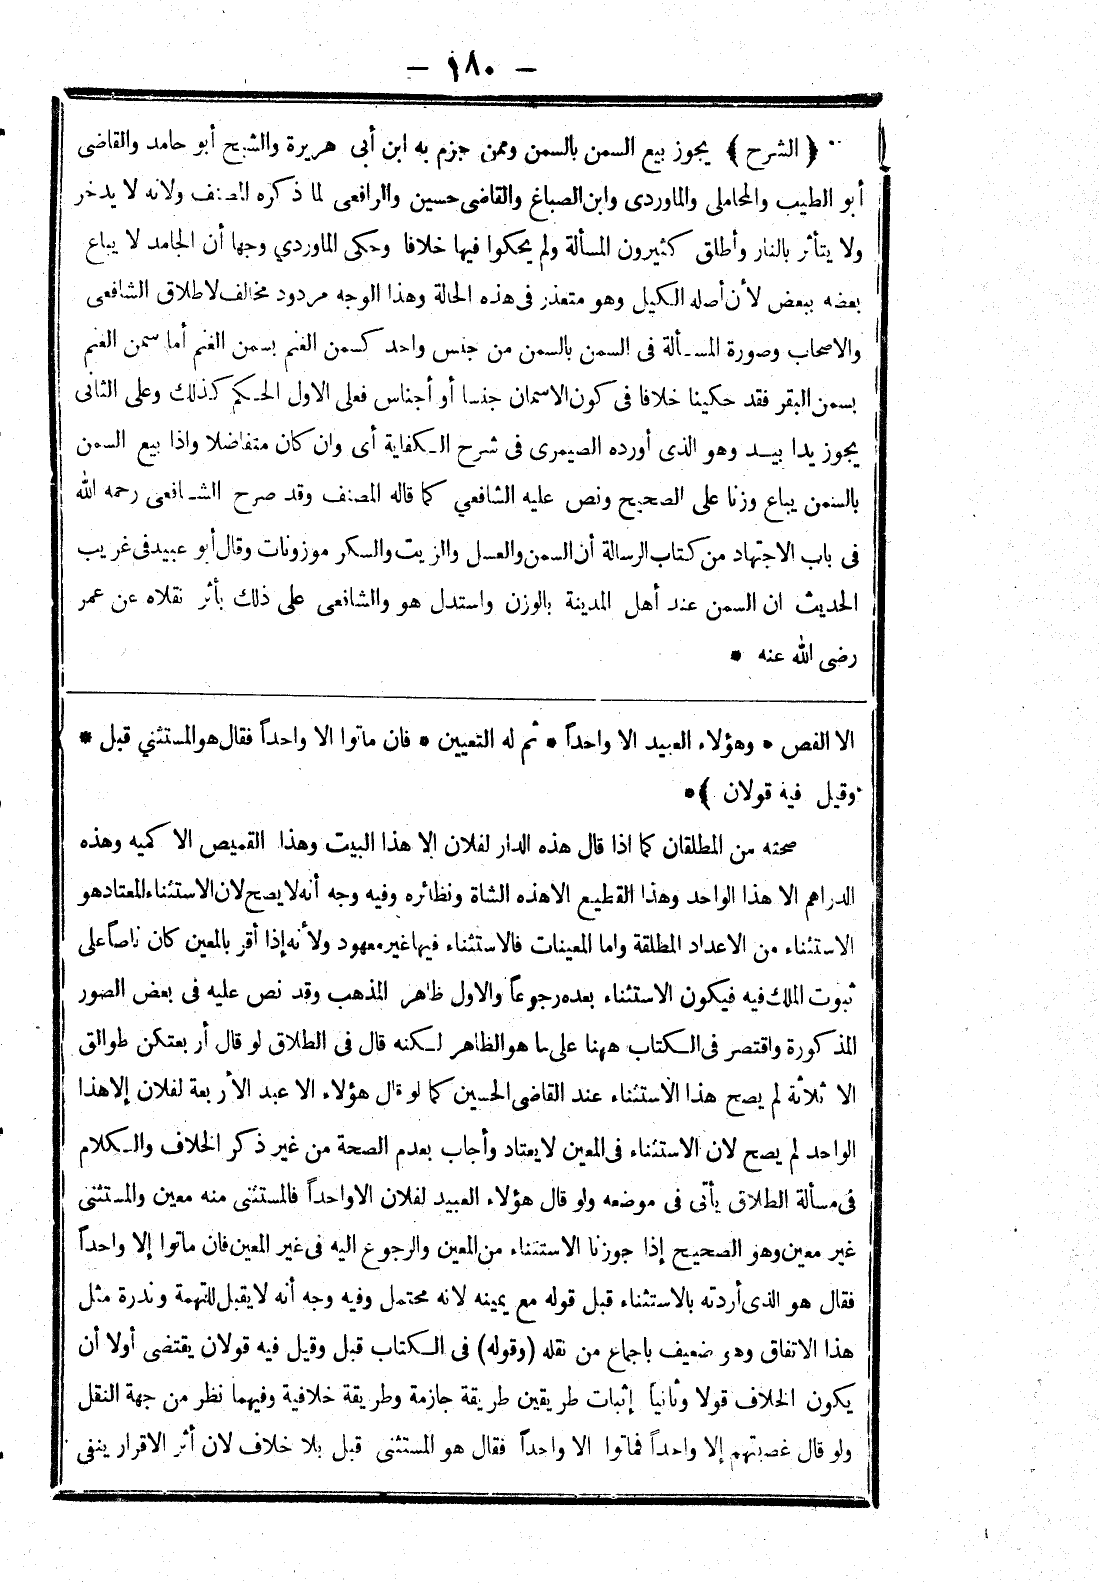 — ١٨٠ —
﴿ الشرح ﴾ يجوز بيع السمن بالسمن وممن جزم به ابن أبى هريرة والشيخ أبو حامد والقاضى
أبو الطيب والمحاملى والماوردى وابن الصباغ والقاضى حسين والرافعى لما ذكره المصنف ولانه لا يدخر
ولا يتأثر بالنار وأطلق كثيرون المسألة ولم يحكوا فيها خلافا وحكى الماوردي وجها أن الجامد لا يباع
بعضه ببعض لأن أصله الكيل وهو متعذر فى هذه الحالة وهذا الوجه مردود مخالف لاطلاق الشافعى
والاصحاب وصورة المسألة فى السمن بالسمن من جنس واحد كسمن الغنم بسمن الغنم أما سمن الغنم
بسمن البقر فقد حكينا خلافا فى كون الاسمان جنسا أو أجناس فعلى الاول الحكم كذلك وعلى الثانى
يجوز يدا بيد وهو الذى أورده الصيمرى فى شرح الكفاية أى وان كان متفاضلا واذا بيع السمن
بالسمن يباع وزنا على الصحيح ونص عليه الشافعي كما قاله المصنف وقد صرح الشافعى رحمه الله
فى باب الاجتهاد من كتاب الرسالة أن السمن والعسل والزيت والسكر موزونات وقال أبو عبيد فى غريب
الحديث ان السمن عند أهل المدينة بالوزن واستدل هو والشافعى على ذلك بأثر نقلاه عن عمر
رضى الله عنه *
الا الفص * وهؤلاء العبيد الا واحداً * ثم له التعيين * فان ماتوا الا واحداً فقال هو المستثني قبل *
وقيل فيه قولان ﴾ *
صحته من المطلقان كما اذا قال هذه الدار لفلان إلا هذا البيت وهذا القميص الا كميه وهذه
الدراهم الا هذا الواحد وهذا القطيع الا هذه الشاة ونظائره وفيه وجه أنه لا يصح لان الاستثناء المعتاد هو
الاستثناء من الاعداد المطلقة واما المعينات فالاستثناء فيها غير معهود ولأنه إذا أقر بالمعين كان ناصاً على
ثبوت الملك فيه فيكون الاستثناء بعده رجوعاً والاول ظاهر المذهب وقد نص عليه فى بعض الصور
المذكورة واقتصر فى الكتاب ههنا على ما هو الظاهر لكنه قال فى الطلاق لو قال أربعتكن طوالق
الا ثلاثة لم يصح هذا الاستثناء عند القاضى الحسين كما لو قال هؤلاء الا عبد الأربعة لفلان إلا هذا
الواحد لم يصح لان الاستثناء فى المعين لا يعتاد وأجاب بعدم الصحة من غير ذكر الخلاف والكلام
فى مسألة الطلاق يأتى فى موضعه ولو قال هؤلاء العبيد لفلان الا واحداً فالمستثنى منه معين والمستثنى
غير معين وهو الصحيح إذا جوزنا الاستثناء من المعين والرجوع اليه فى غير المعين فان ماتوا إلا واحداً
فقال هو الذى أردته بالاستثناء قبل قوله مع يمينه لانه محتمل وفيه وجه أنه لا يقبل للتهمة وندرة مثل
هذا الاتفاق وهو ضعيف باجماع من نقله (وقوله) فى الكتاب قبل وقيل فيه قولان يقتضى أولا أن
يكون الخلاف قولا وثانياً إثبات طريقين طريقة جازمة وطريقة خلافية وفيهما نظر من جهة النقل
ولو قال غصبتهم إلا واحداً فماتوا الا واحداً فقال هو المستثنى قبل بلا خلاف لان أثر الاقرار ينفى